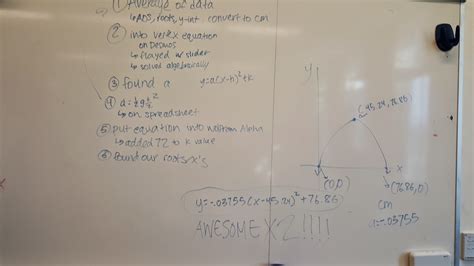 ① Average of data
↳AOS, roots, y-int convert to cm
② into vertex equation
on Desmos
↳played w/ slider
↳solved algebraically
③ found a y=a(x-h)²+k
④
↳on spreadsheet
⑤ put equation into Wolfram Alpha
↳added 72 to k value
⑥ found our roots/x's
y=-.03755(x-45.24)²+76.85
AWESOME X2!!!!
y
(45.24, 76.85)
x
(0,0)
cm
a=-.03755